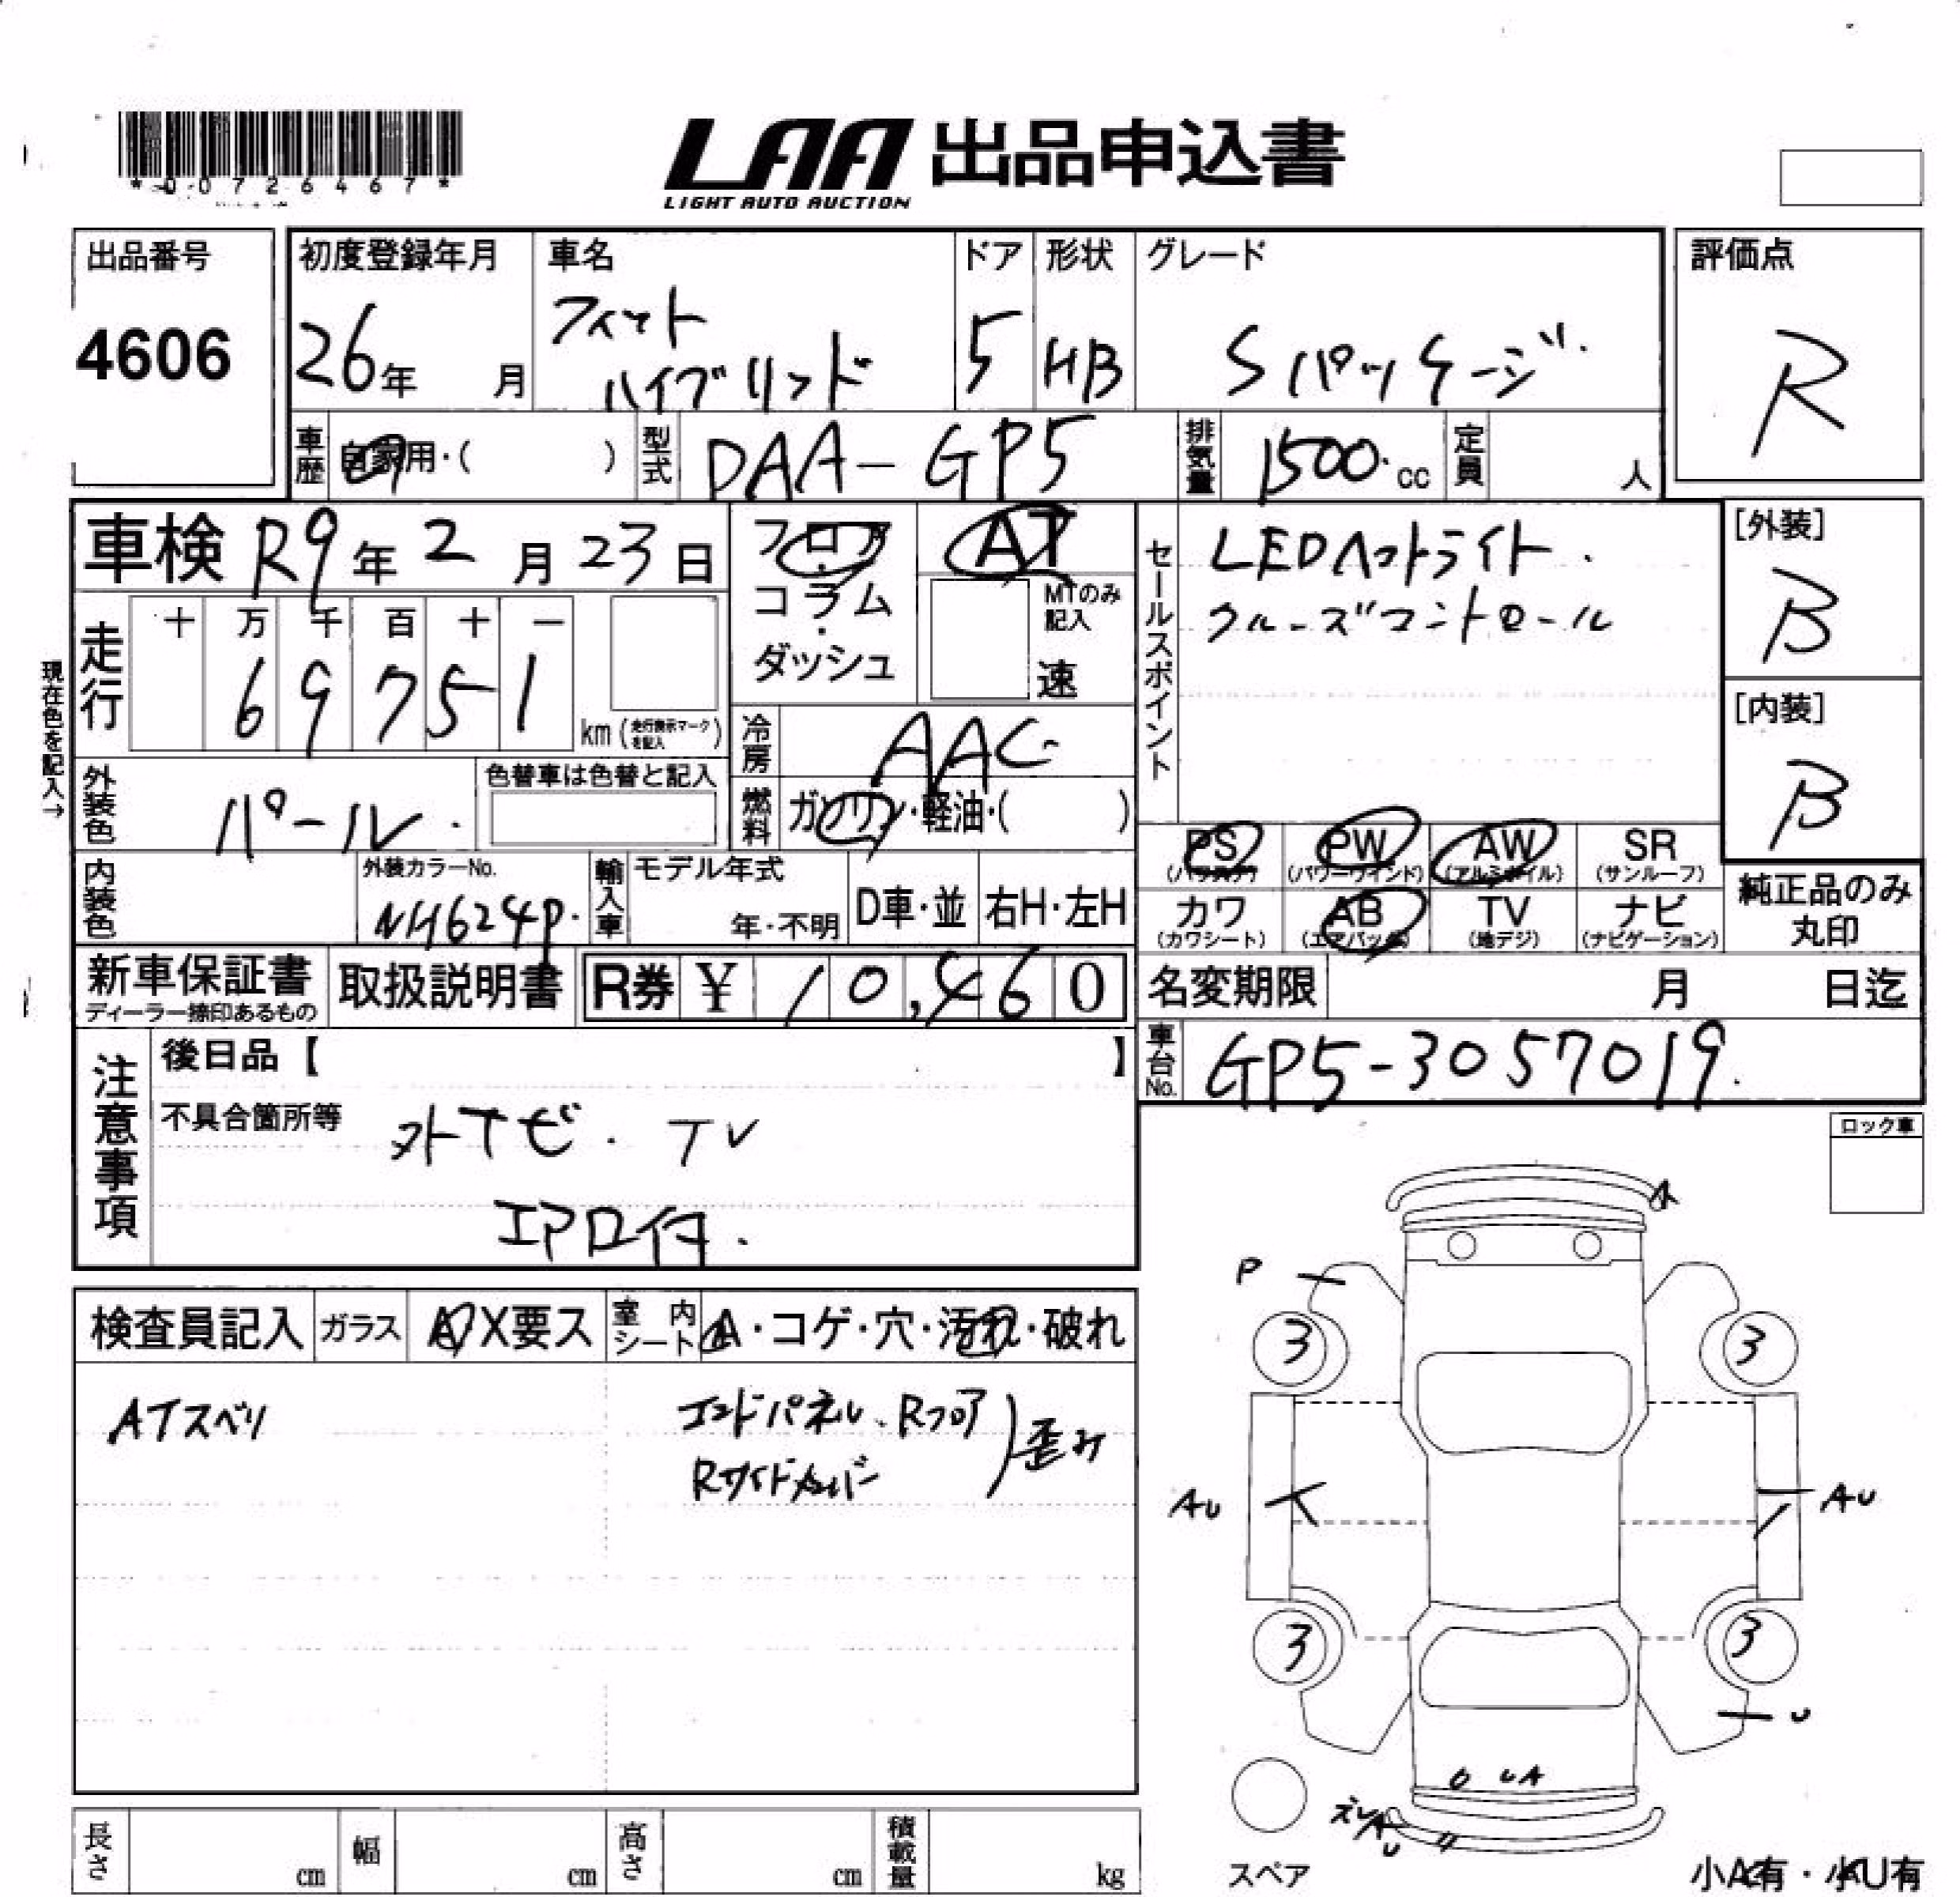 *00726467*
LAA 出品申込書
LIGHT AUTO AUCTION
出品番号
4606
初度登録年月
26年 月
車名
フィット
ハイブリッド
ドア
5
形状
HB
グレード
Sパッケージ
評価点
R
車歴 自家用・( )
型式 DAA-GP5
排気量 1500 cc
定員 人
車検 R9年 2月 23日
フロア・
コラム・
ダッシュ
AT
MTのみ記入
速
セールスポイント
LEDヘットライト.
クルーズコントロール
[外装]
B
[内装]
B
現在色を記入→
走行
十 万 千 百 十 一
69751
km (走行表示マークを記入)
冷房 AAC
外装色 パール
色替車は色替と記入
燃料 ガソリン・軽油・( )
PS (パワステ)
PW (パワーウインド)
AW (アルミホイル)
SR (サンルーフ)
カワ (カワシート)
AB (エアバック)
TV (地デジ)
ナビ (ナビゲーション)
純正品のみ
丸印
内装色
外装カラーNo.
NH624P
輸入車
モデル年式
年・不明
D車・並
右H・左H
新車保証書
ディーラー捺印あるもの
取扱説明書
R券 ¥ 10,460
名変期限 月 日迄
車台No. GP5-3057019
注意事項
後日品【 】
不具合箇所等
外ナビ. TV
エアロ付.
ロック車
検査員記入
ガラス
A/X要ス
室内シート
A・コゲ・穴・汚れ・破れ
ATスベリ
エンドパネル、Rフロア
Rサイドメンバー
歪み
A
P
3
3
AU
AU
3
3
U
UA
ズレ
A
U
スペア
長さ cm
幅 cm
高さ cm
積載量 kg
小A有・小U有